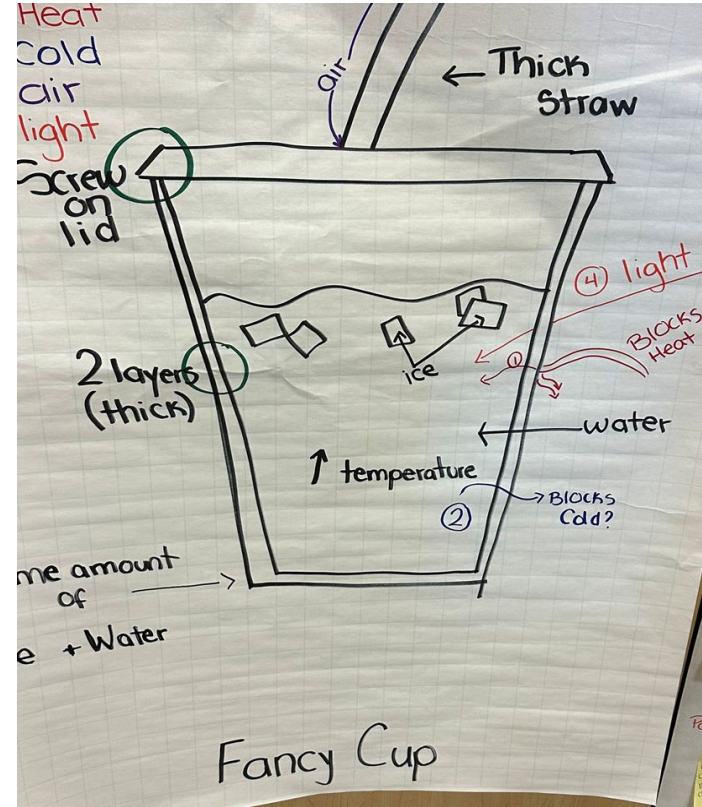 Heat
Cold
air
light
air
← Thick
Straw
Screw
on
lid
④ light
Blocks
Heat
①
ice
2 layers
(thick)
water
↑ temperature
②
Blocks
Cold?
me amount
of
e + Water
Fancy Cup